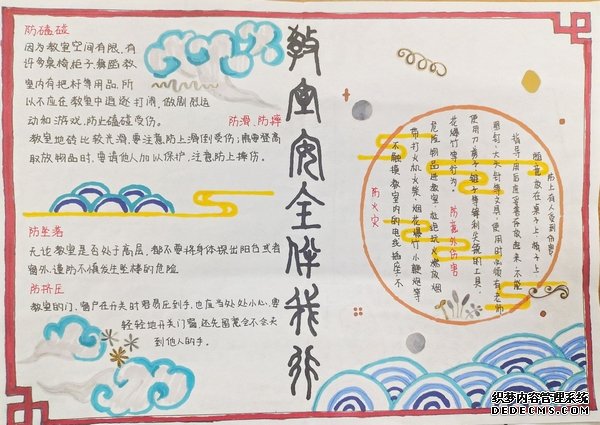 防磕碰
因为教室空间有限,有
许多桌椅柜子,舞蹈教
室内有把杆等用品,所
以不应在教室中追逐打闹,做剧烈运
动和游戏,防止磕碰受伤。
防滑、防摔
教室地砖比较光滑,要注意防止滑倒受伤;需要登高
取放物品时,要请他人加以保护,注意防止摔伤。
防坠落
无论教室是否处于高层,都不要将身体探出阳台或者
窗外,谨防不慎发生坠楼的危险
防挤压
教室的门、窗户在开关时容易压到手,也应当处处小心,要
轻轻地开关门窗,还先留意会不会夹
到他人的手。
教室安全伴我行
防止有人受到伤害
随意放在桌子上、椅子上,
指导,用后应妥善存放起来,不能
图钉、大头针等文具,使用时必须有老师
使用刀、剪子、锥子等锋利尖锐的工具,
防意外伤害
花爆竹等行为。
危险物品进教室,杜绝玩火、燃放烟
带打火机、火柴、烟花爆竹、小鞭炮等
不触摸教室内的电线、插座,不
防火灾
织梦内容管理系统
DEDECMS.COM